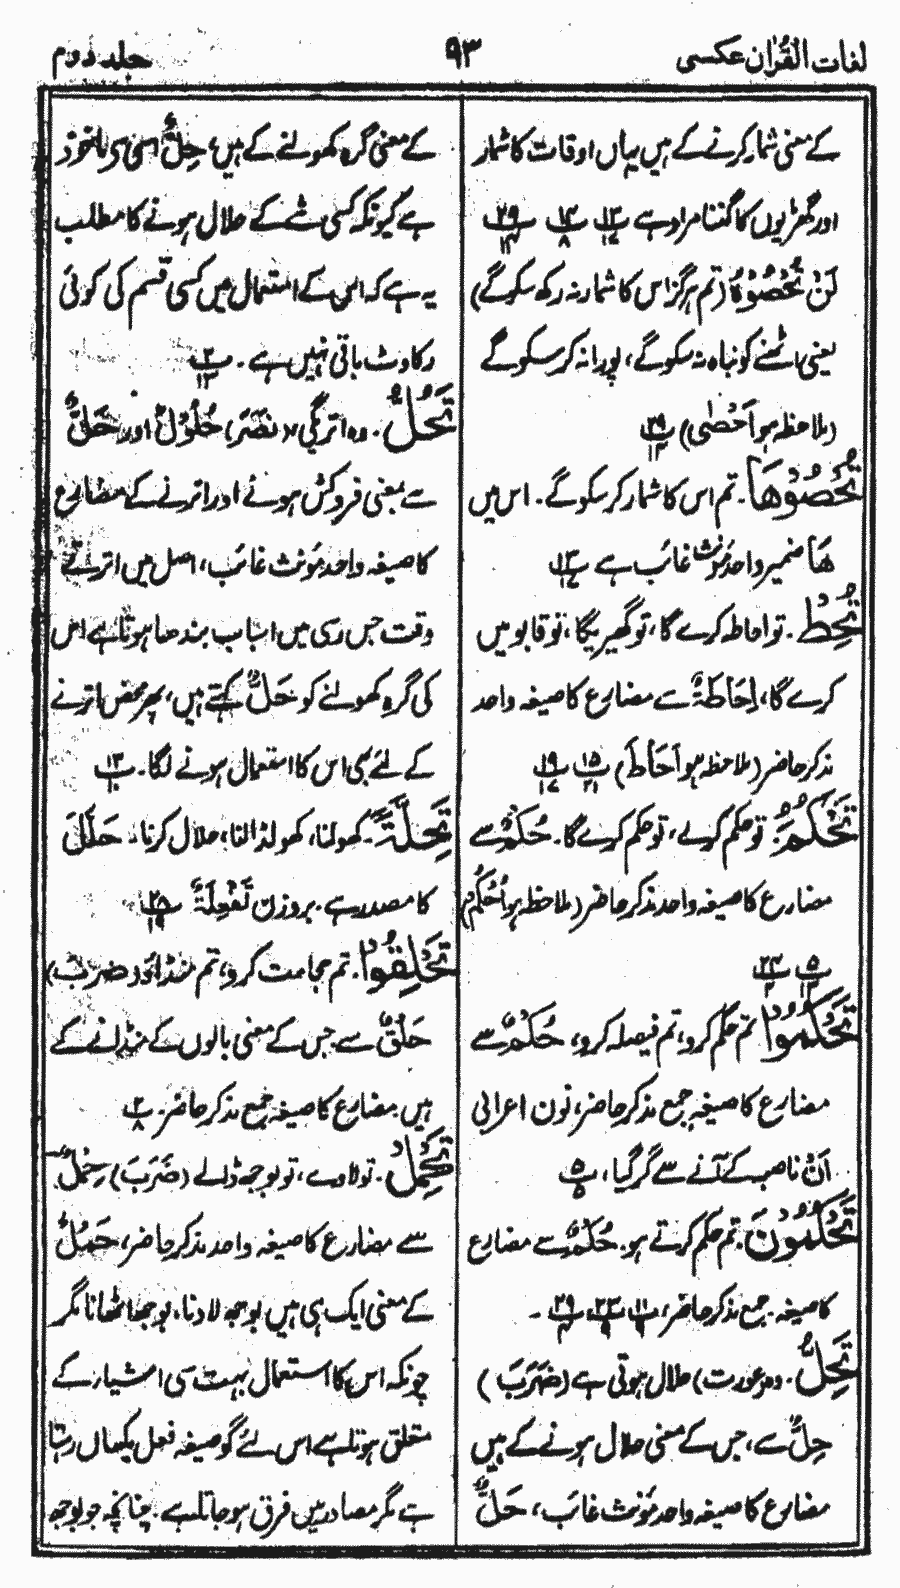 لغات القرآن عکسی
۹۳
جلد دوم
کے معنی شمار کرنے کے ہیں یہاں اوقات کا شمار
اور گھڑیوں کا گننا مراد ہے
لَنْ تُحْصُوْہُ (تم ہرگز اس کا شمار نہ رکھ سکو گے)
یعنی اسنے کو نباہ نہ سکو گے، پورا نہ کر سکو گے
(ملاحظہ ہو اَحْصٰی)
تُحْصُوْھَا۔ تم اس کا شمار کر سکو گے۔ اس میں
ھَا ضمیر واحد مؤنث غائب ہے
تُحِطْ۔ تو احاطہ کرے گا، تو گھیریگا، تو قابو میں
کرے گا، اِحَاطَۃٌ سے مضارع کا صیغہ واحد
مذکر حاضر (ملاحظہ ہو اَحَاطَ)
تَحْکُمَ: تو حکم کرے، تو حکم کرے گا۔ حُکْمٌ سے
مضارع کا صیغہ واحد مذکر حاضر (ملاحظہ ہو اُحْکُمْ)
تَحْکُمُوْا تم حکم کرو، تم فیصلہ کرو، حُکْمٌ سے
مضارع کا صیغہ جمع مذکر حاضر، نون اعرابی
اَنْ ناصب کے آنے سے گر گیا،
تَحْکُمُوْنَ۔ تم حکم کرتے ہو۔ حُکْمٌ سے مضارع
کا صیغہ۔ جمع مذکر حاضر،
تَحِلُّ۔ وہ (عورت) حلال ہوتی ہے (ضَرَبَ)
حِلٌّ سے، جس کے معنی حلال ہونے کے ہیں
مضارع کا صیغہ واحد مؤنث غائب، حَلٌّ
کے معنی گرہ کھولنے کے ہیں، حِلٌّ اسی سے ماخوذ
ہے کیونکہ کسی شے کے حلال ہونے کا مطلب
یہ ہے کہ اس کے استعمال میں کسی قسم کی کوئی
رکاوٹ باقی نہیں ہے۔
تَحُلُّ۔ وہ اترتی (نَصَرَ) حُلُوْلٌ اور حَلٌّ
سے بمعنی فروکش ہونے اور اترنے کے مضارع
کا صیغہ واحد مؤنث غائب، اصل میں اترتے
وقت جس رسی میں اسباب بندھا ہوتا ہے اس
کی گرہ کھولنے کو حَلٌّ کہتے ہیں، پھر محض اترنے
کے لئے بھی اس کا استعمال ہونے لگا۔
تَحِلَّۃَ۔ کھولنا، کھولڈالنا، حلال کرنا۔ حَلَّلَ
کا مصدر ہے۔ بروزن تَفْعِلَۃٌ
تَحْلِقُوْا۔ تم حجامت کرو، تم منڈاؤ (ضَرَبَ)
حَلْقٌ سے جس کے معنی بالوں کے منڈانے کے
ہیں۔ مضارع کا صیغہ جمع مذکر حاضر۔
تَحْمِلْ۔ تو لادے، تو بوجھ ڈالے (ضَرَبَ) حَمْلٌ
سے مضارع کا صیغہ واحد مذکر حاضر، حَمْلٌ
کے معنی ایک ہی ہیں بوجھ لادنا، بوجھ اٹھانا مگر
چونکہ اس کا استعمال بہت سی اشیار کے
متعلق ہوتا ہے اس لئے گو صیغہ فعل یکساں رہتا
ہے مگر مصادر میں فرق ہو جاتا ہے۔ چنانچہ جو بوجھ